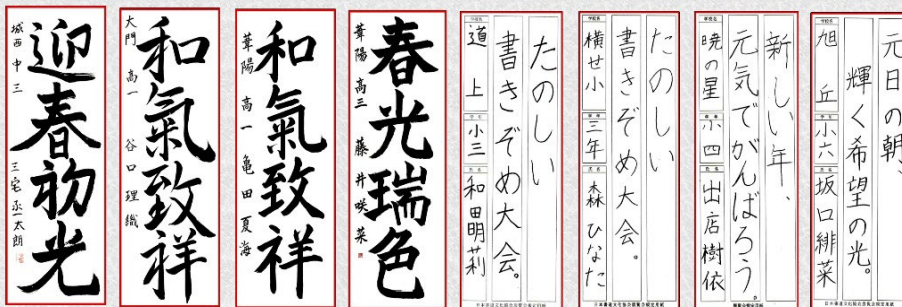 迎春初光
城西中三 三宅丞太朗
和氣致祥
大門高一 谷口理織
和氣致祥
葦陽高一 亀田夏海
春光瑞色
葦陽高三 藤井咲菜
たのしい
書きぞめ大会。
道上 小三 和田明莉
たのしい
書きぞめ大会。
横せ小 三年 森ひなた
新しい年、
元気でがんばろう。
暁の星 小四 出店樹依
元日の朝、
輝く希望の光。
旭丘 小六 坂口緋菜